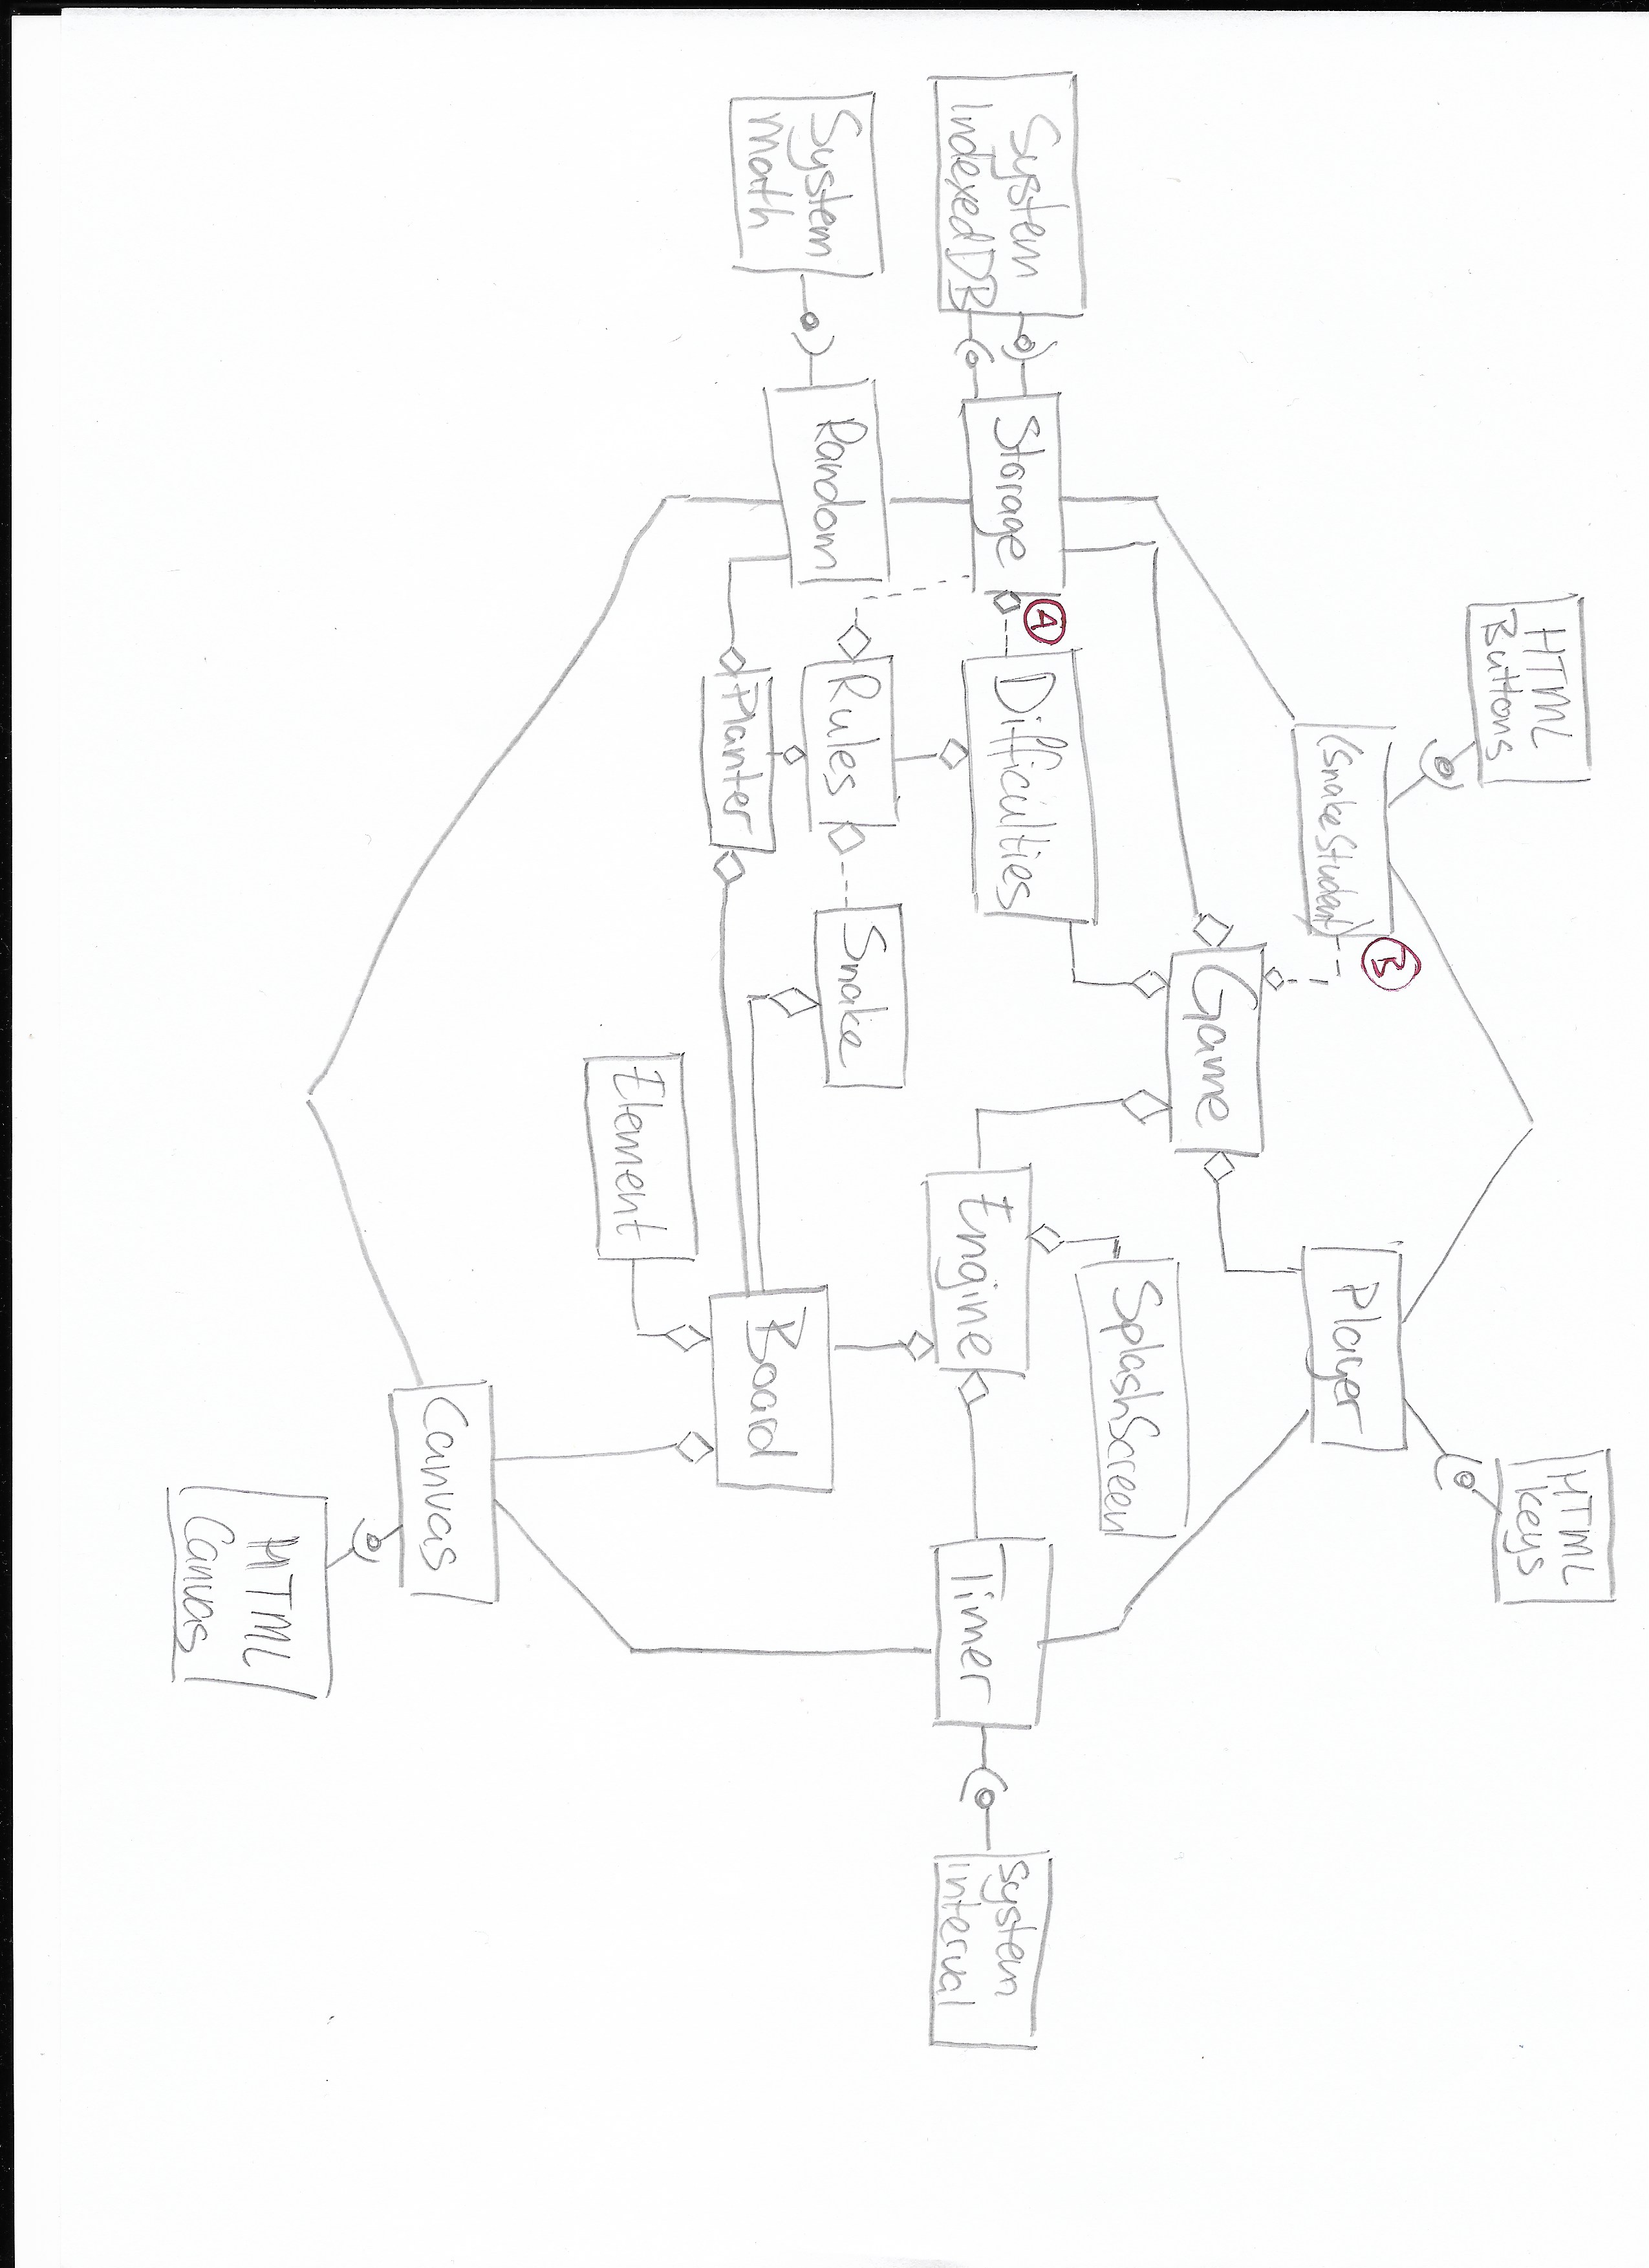 HTML
Buttons
HTML
keys
B
(SnakeStudent)
Player
Game
SplashScreen
System
IndexedDB
Storage
A
Difficulties
Engine
Timer
system
interval
System
math
Random
Rules
Snake
Board
Planter
Element
Canvas
HTML
Canvas